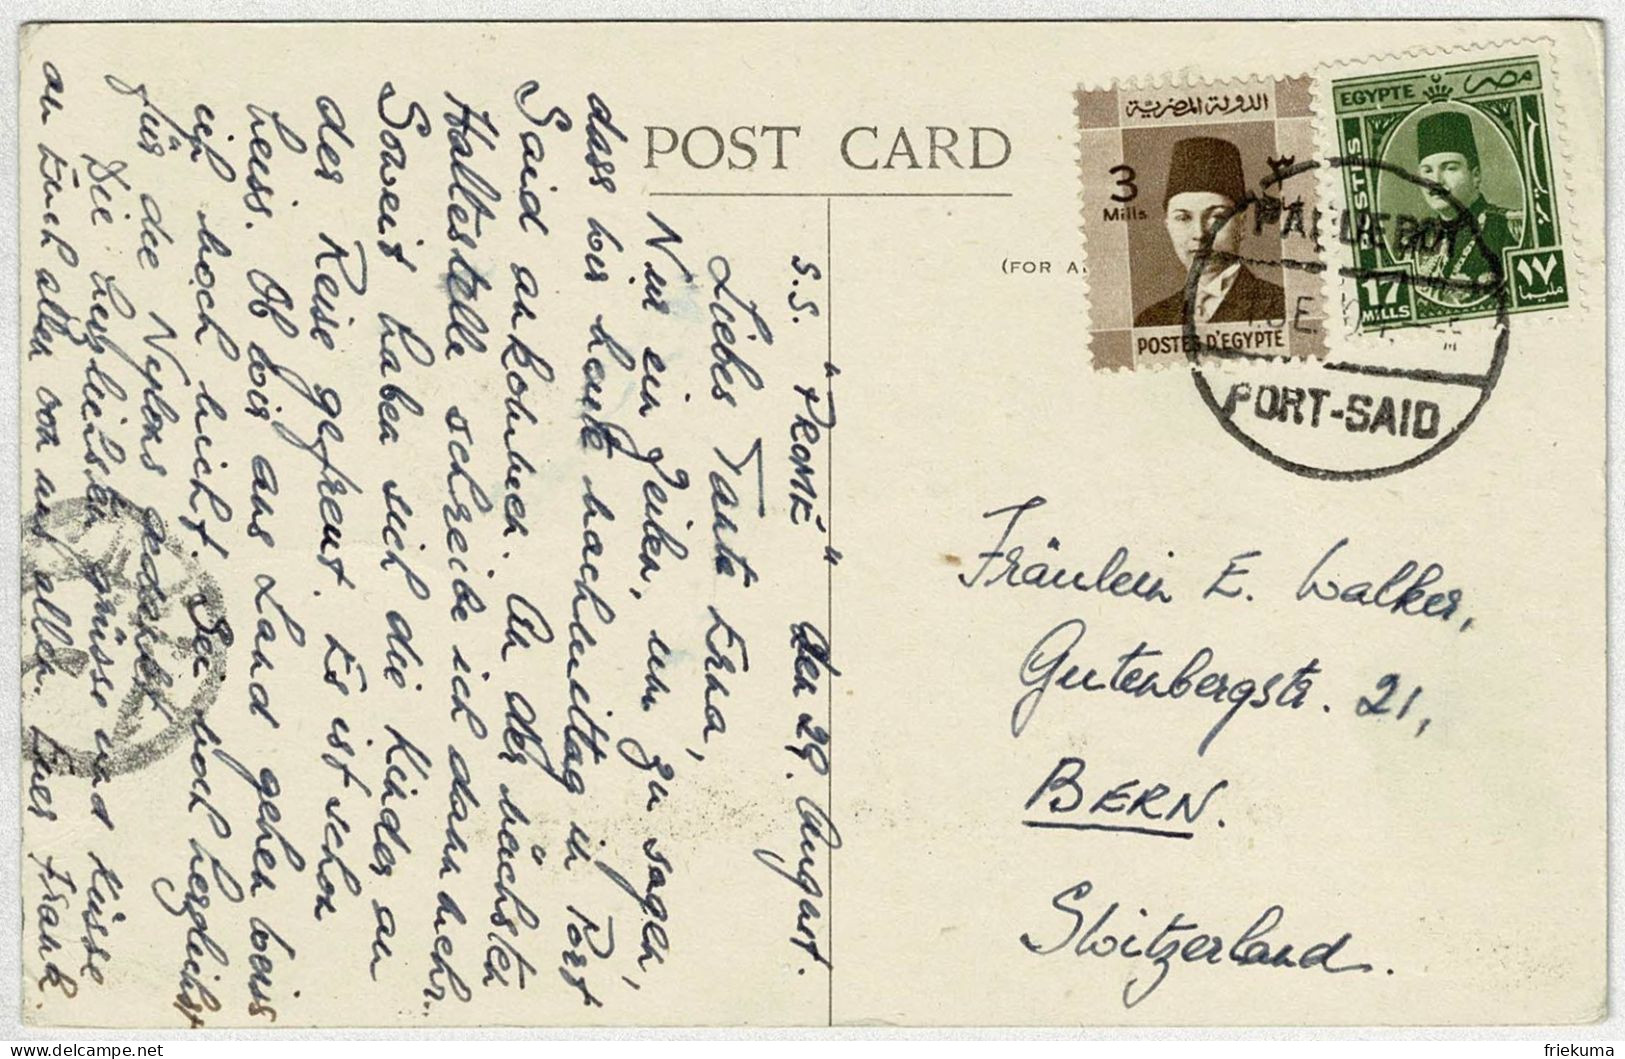 POST CARD
(FOR A
الدولة المصرية
3
Mills
٣
POSTES D'EGYPTE
EGYPTE مصر
POSTES
17
MILLS
١٧
مليما
PAQUEBOT
PORT-SAID
S.S. " " den 29. August.
Liebes Tante Erna,
Nur ein Zeilen, um zu sagen,
dass wir heute nachmittag in Port
Said ankommen. An der nächsten
Haltestelle schreibe ich dann mehr.
Soweit haben sich die Kinder an
der Reise gefreut. Es ist schon
heiss. Ob wir ans Land gehen weiss
ich noch nicht. Sei noch herzlichst
für die Nylons gedankt.
Die herzlichsten Grüsse und Küsse
an Euch allen von uns allen. Euer Frank.
Fräulein E. Walker,
Gutenbergstr. 21,
BERN.
Switzerland.
friekuma